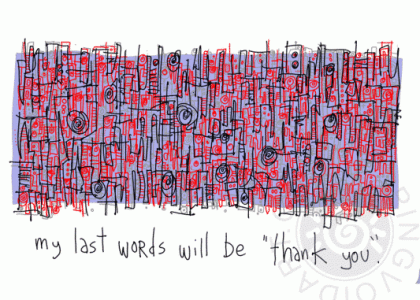 my last words will be "thank you".
GAPINGVOIDART